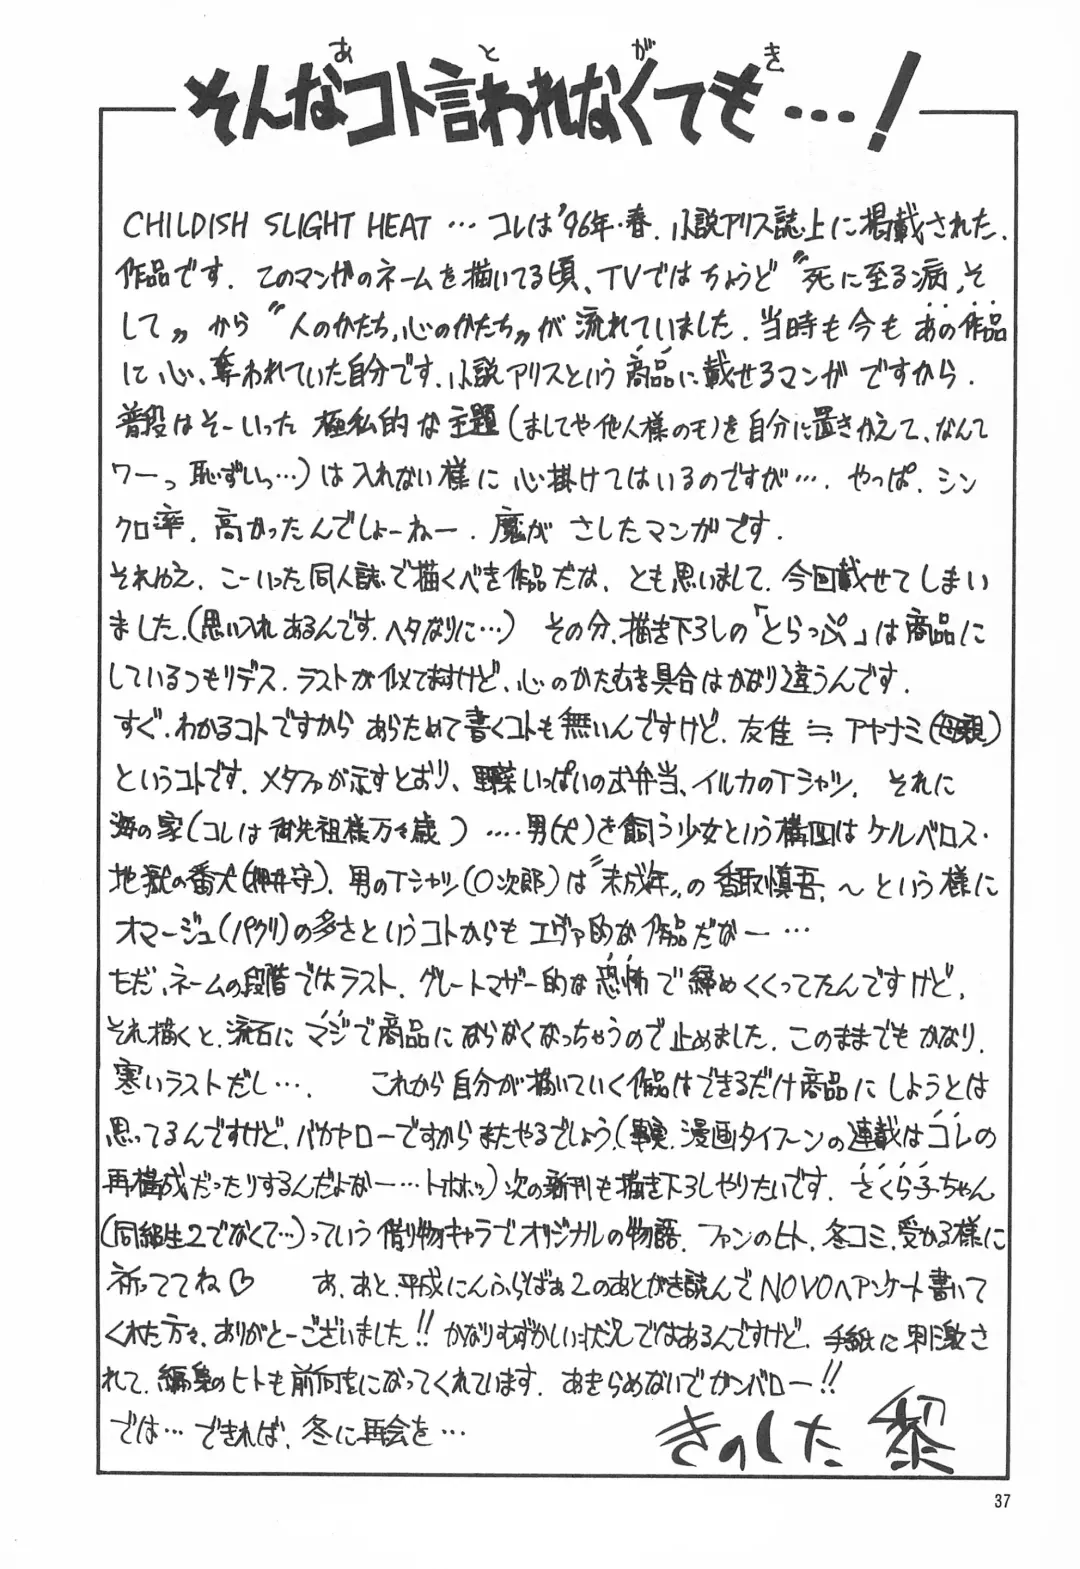 あとがき
そんなコト言われなくても…!
CHILDISH SLIGHT HEAT … コレは'96年・春、小説アリス誌上に掲載された、
作品です。このマンガのネームを描いてる頃、TVではちょうど〝死に至る病、そ
して〟から〝人のかたち、心のかたち〟が流れていました。当時も今もあの作品
に心、奪われていた自分です。小説アリスという商品に載せるマンガですから。
普段はそーいった極私的な主題(ましてや他人様のモノを自分に置きかえて、なんて
ワーっ恥ずしいっ…)は入れない様に心掛けてはいるのですが…。やっぱ、シン
クロ率、高かったんでしょーねー。魔がさしたマンガです。
それゆえ、こーいった同人誌で描くべき作品だな、とも思いまして、今回載せてしまい
ました。(思い入れあるんです、ヘタなりに…) その分、描き下ろしの「とらっぷ」は商品に
しているつもりデス。ラストが似てますけど、心のかたむき具合はかなり違うんです。
すぐ、わかるコトですからあらためて書くコトも無いんですけど、友佳≒アヤナミ(母親)
というコトです。メタファが示すとおり、野菜いっぱいのお弁当、イルカのTシャツ。それに
海の家(コレは御先祖様万々歳)…男(犬)を飼う少女という構図はケルベロス・
地獄の番犬(押井守)、男のTシャツ(○次郎)は〝未成年〟の香取慎吾、〜という様に
オマージュ(パクリ)の多さというコトからもエヴァ的な作品だなー…
ただ、ネームの段階ではラスト、グレートマザー的な恐怖で締めくくってたんですけど、
それ描くと、流石にマジで商品にならなくなっちゃうので止めました。このままでもかなり、
寒いラストだし…。 これから自分が描いていく作品はできるだけ商品にしようとは
思ってるんですけど、バカヤローですからまたやるでしょう。(事実、漫画タイフーンの連載はコレの
再構成だったりするんだよなー…トホホッ)次の新刊も描き下ろしやりたいです。さくら子ちゃん
(同級生2でなくて…)っていう借り物キャラでオリジナルの物語。ファンのヒト、冬コミ、受かる様に
祈っててね♡ あ、あと、平成にんふらばぁ2のあとがき読んでNOVOへアンケート書いて
くれた方々、ありがとーございました!! かなりむずかしい状況ではあるんですけど、手紙に刺激さ
れて、編集のヒトも前向きになってくれています。あきらめないでガンバロー!!
では…できれば、冬に再会を…
きのした黎
37